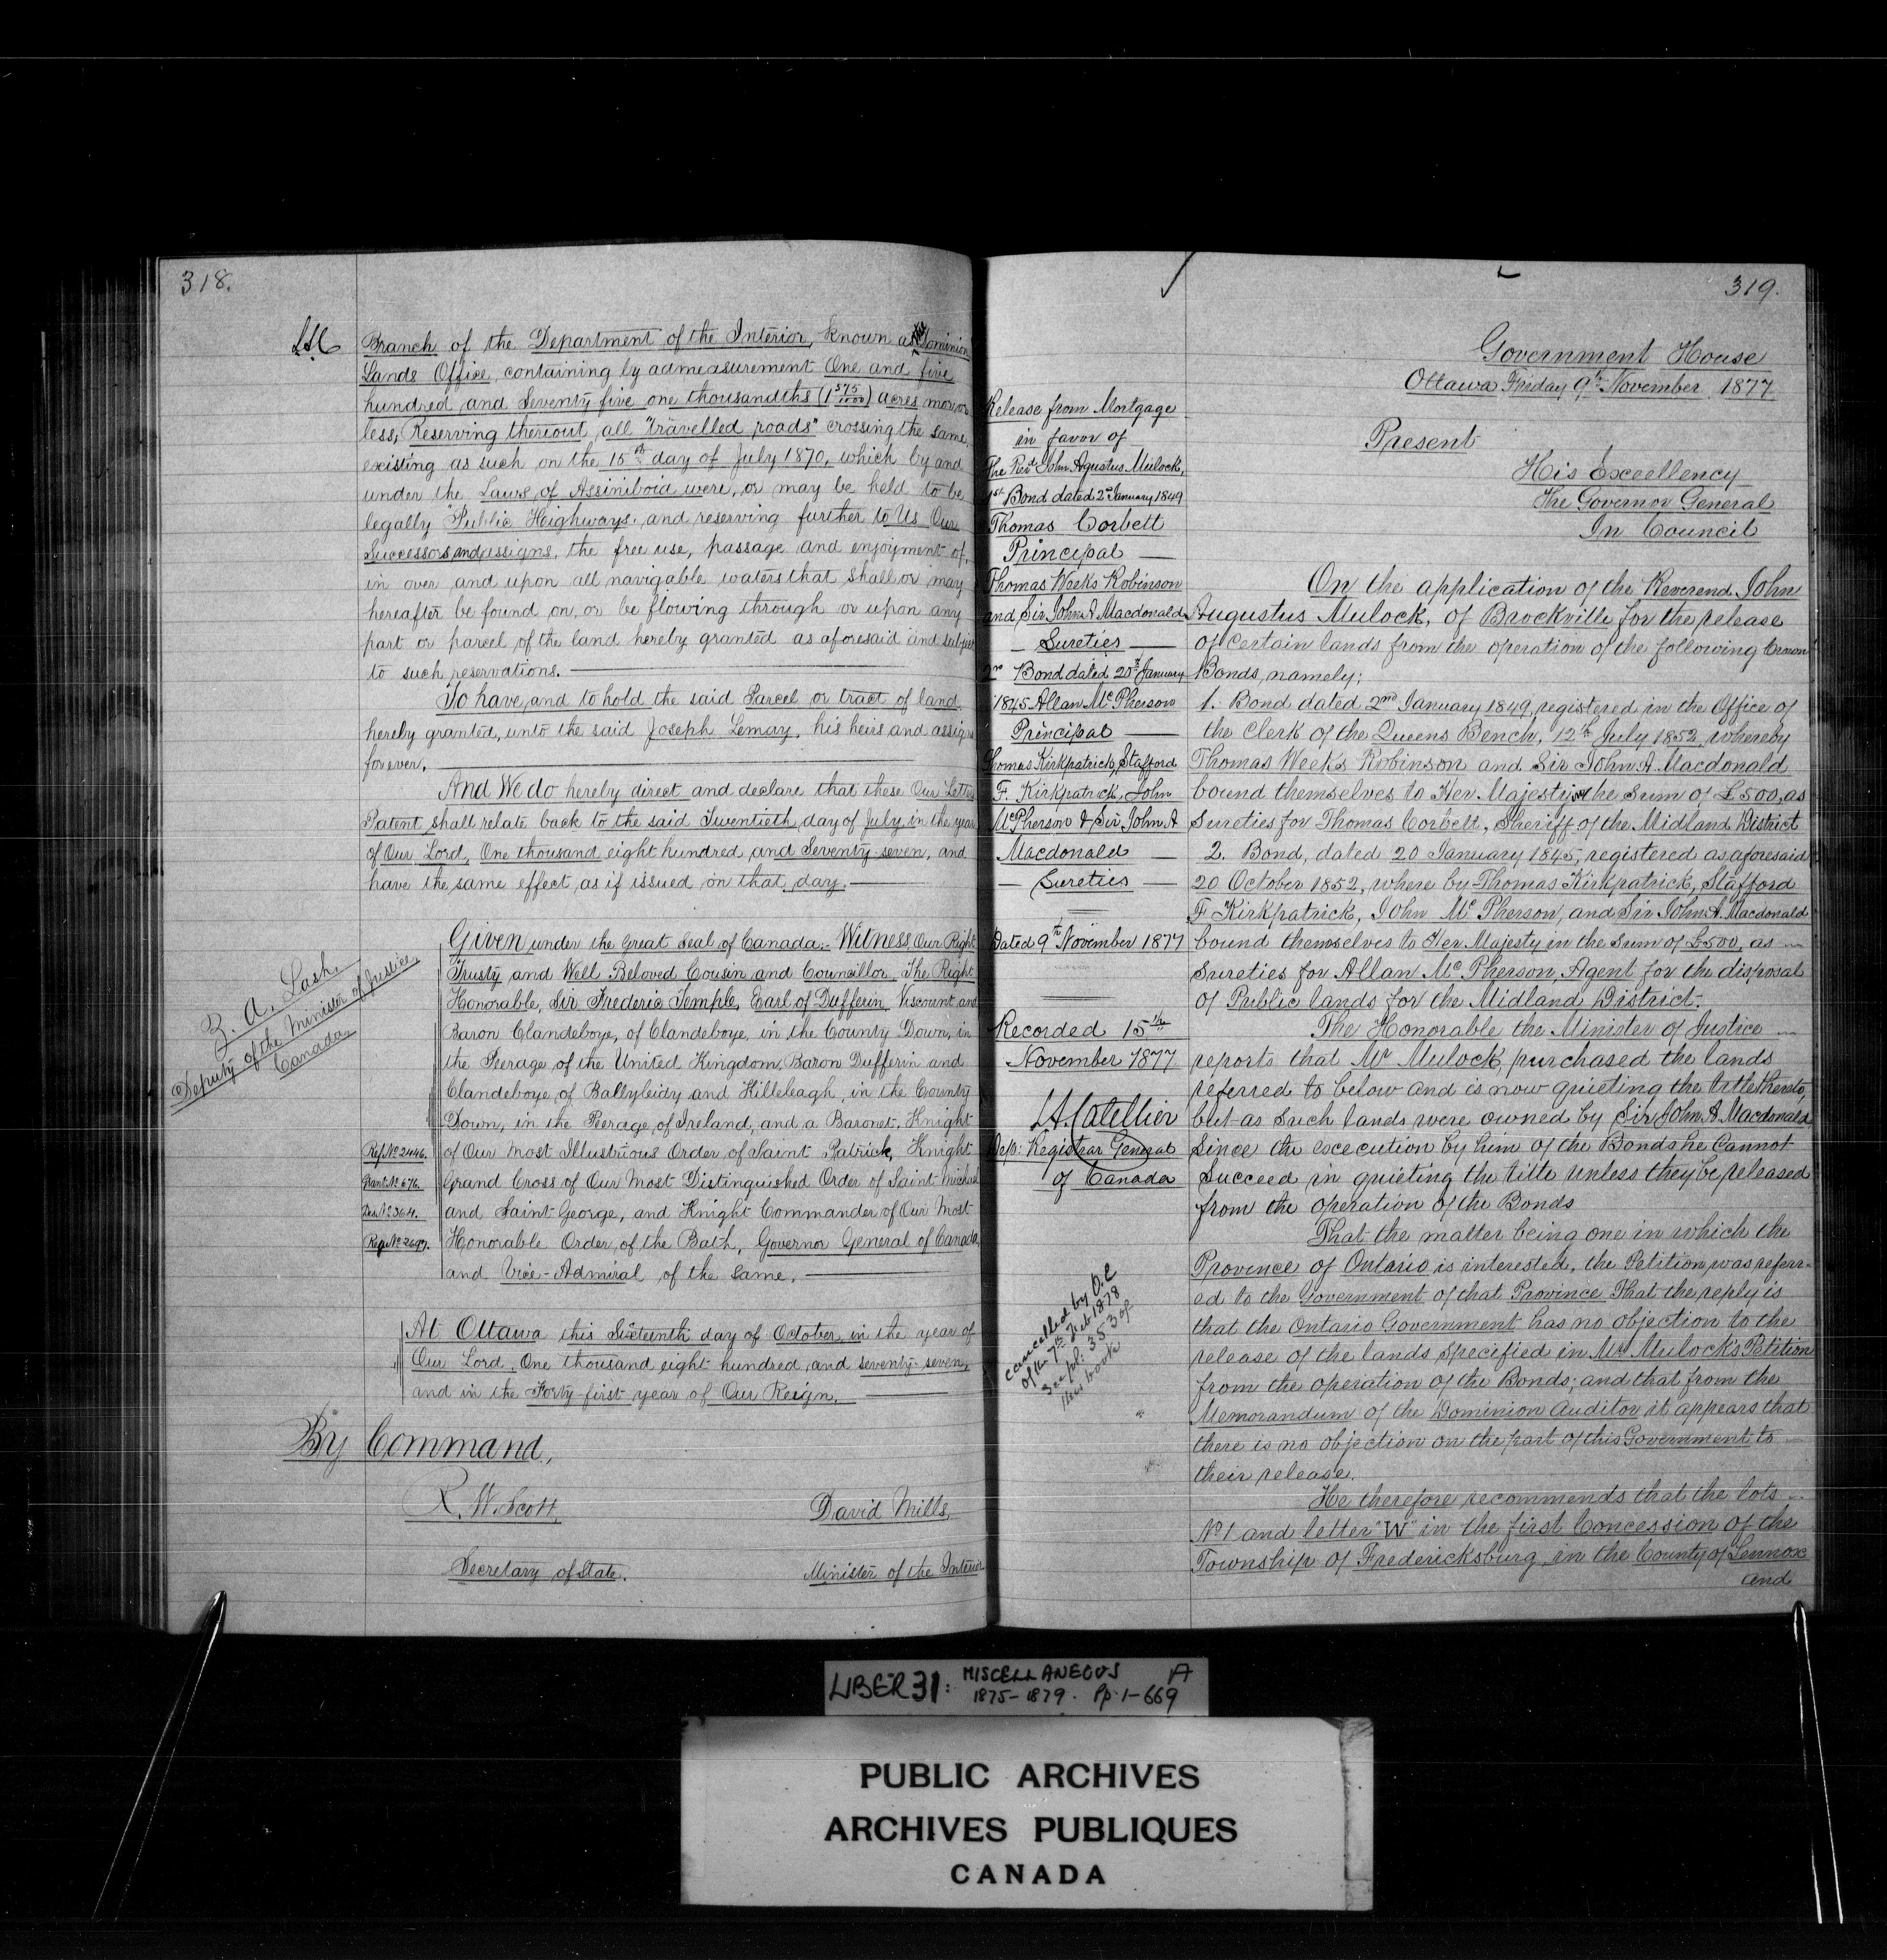 318.
LAC
Branch of the Department of the Interior, known as the Dominion
Lands Office, containing by admeasurement One and five
hundred and Seventy five one thousandths (1 575/1000) acres more or
less, Reserving thereout all "travelled roads" crossing the same
existing as such on the 15th day of July 1870, which by and
under the Laws of Assiniboia were, or may be held to be
legally "Public Heighways" and reserving further to Us Our
Successors and assigns, the free use, passage and enjoyment of,
in over and upon all navigable waters that shall or may
hereafter be found on, or be flowing through or upon any
part or parcel of the land hereby granted as aforesaid and subject
to such reservations.
To have and to hold the said Parcel or tract of land
hereby granted, unto the said Joseph Lemay, his heirs and assigns
forever.
And We do hereby direct and declare that these Our Letters
Patent shall relate back to the said Twentieth day of July in the year
of Our Lord, One thousand eight hundred and Seventy-seven, and
have the same effect as if issued on that day.
Z. A. Lash
Deputy of the Minister of Justice,
Canada
Given under the Great Seal of Canada:- Witness, Our Right
Trusty and Well Beloved Cousin and Councillor, The Right
Honorable, Sir Frederic Temple, Earl of Dufferin, Viscount and
Baron Clandeboye, of Clandeboye, in the County Down, in
the Peerage of the United Kingdom, Baron Dufferin and
Clandeboye of Ballyleidy and Killeleagh, in the County
Down, in the Peerage of Ireland, and a Baronet, Knight
Ref. No 2446. of Our Most Illustrious Order of Saint Patrick, Knight
Grant No 676. Grand Cross of Our Most Distinguished Order of Saint Michael
No 364. and Saint George, and Knight Commander of Our Most
Ref No 2697. Honorable Order of the Bath, Governor General of Canada,
and Vice-Admiral of the same.
At Ottawa this Sixteenth day of October in the year of
Our Lord, One thousand eight hundred and seventy-seven,
and in the Forty-first year of Our Reign.
By Command,
R. W. Scott, David Mills,
Secretary of State. Minister of the Interior
319.
Release from Mortgage
in favor of
The Revd John Agustus Mulock,
1st Bond dated 2nd January 1849
Thomas Corbett
Principal
Thomas Weeks Robinson
and Sir John A Macdonald
Sureties
2nd Bond dated 20th January
1845 Allan McPherson
Principal
Thomas Kirkpatrick, Stafford
F. Kirkpatrick, John
McPherson & Sir John A
Macdonald
Sureties
Dated 9th November 1877
Recorded 15th
November 1877
LA. Catellier
Dep: Registrar General
of Canada
cancelled by O.C
of the 7th Feb 1878
See fol: 353 of
this book
Government House
Ottawa Friday 9th November 1877
Present
His Excellency
The Governor General
In Council
On the application of the Reverend John
Augustus Mulock, of Brockville for the release
of certain lands from the operation of the following Crown
Bonds, namely;
1. Bond dated 2nd January 1849, registered in the Office of
the Clerk of the Queens Bench, 12th July 1852, whereby
Thomas Weeks Robinson and Sir John A. Macdonald
bound themselves to Her Majesty in the sum of £500, as
Sureties for Thomas Corbett, Sheriff of the Midland District
2. Bond, dated 20 January 1845, registered as aforesaid
20 October 1852, where by Thomas Kirkpatrick, Stafford
F Kirkpatrick, John McPherson, and Sir John A. Macdonald
bound themselves to Her Majesty in the sum of £500, as
Sureties for Allan McPherson, Agent for the disposal
of Public lands for the Midland District.
The Honorable the Minister of Justice
reports that Mr Mulock, purchased the lands
referred to below and is now quieting the title thereto,
but as such lands were owned by Sir John A Macdonald
since the excecution by him of the Bonds he cannot
succeed in quieting the title unless they be released
from the operation of the Bonds
That the matter being one in which the
Province of Ontario is interested, the Petition was referr-
ed to the Government of that Province That the reply is
that the Ontario Government has no objection to the
release of the lands specified in Mr Mulock's Petition
from the operation of the Bonds; and that from the
Memorandum of the Dominion Auditor it appears that
there is no objection on the part of this Government to
their release.
He therefore recommends that the lots
No 1 and letter "W" in the first Concession of the
Township of Fredericksburg, in the County of Lennox
and
LIBER 31: MISCELLANEOUS A
1875-1879. Pp. 1-669
PUBLIC ARCHIVES
ARCHIVES PUBLIQUES
CANADA